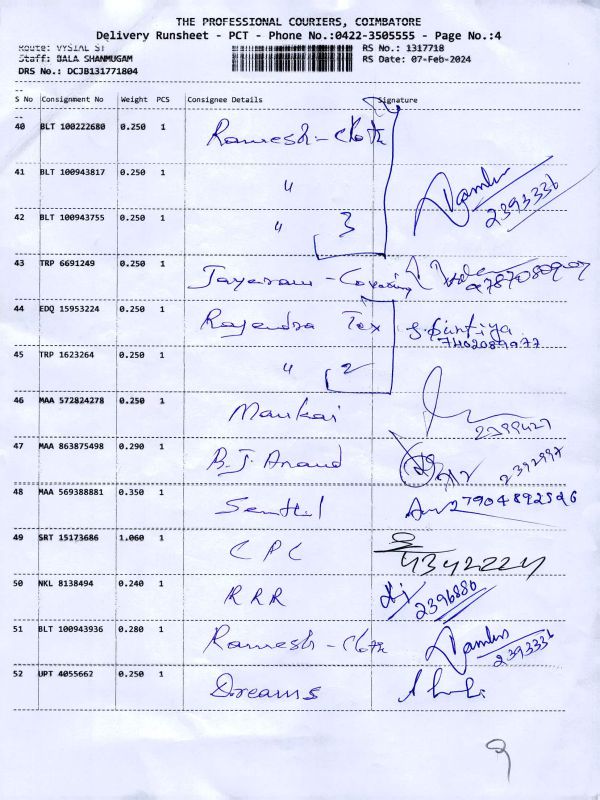 THE PROFESSIONAL COURIERS, COIMBATORE
Delivery Runsheet - PCT - Phone No.:0422-3505555 - Page No.:4
Route: VYSIAL ST
RS No.: 1317718
Staff: BALA SHANMUGAM
RS Date: 07-Feb-2024
DRS No.: DCJB131771804
S No Consignment No Weight PCS Consignee Details Signature
40 BLT 100222680 0.250 1 Ramesh - Cloth
41 BLT 100943817 0.250 1 "
42 BLT 100943755 0.250 1 " 3 2393336
43 TRP 6691249 0.250 1 Jayaram - Covering
44 EDQ 15953224 0.250 1 Rajendra Tex
7402089977
45 TRP 1623264 0.250 1 " 2
46 MAA 572824278 0.250 1 Mankai 2399427
47 MAA 863875498 0.290 1 B.J. Anand 2392997
48 MAA 569388881 0.350 1 Senthil
49 SRT 15173686 1.060 1 CPC 4342224
50 NKL 8138494 0.240 1 RRR 2396886
51 BLT 100943936 0.280 1 Ramesh - Cloth 2393336
52 UPT 4055662 0.250 1 Dreams
9